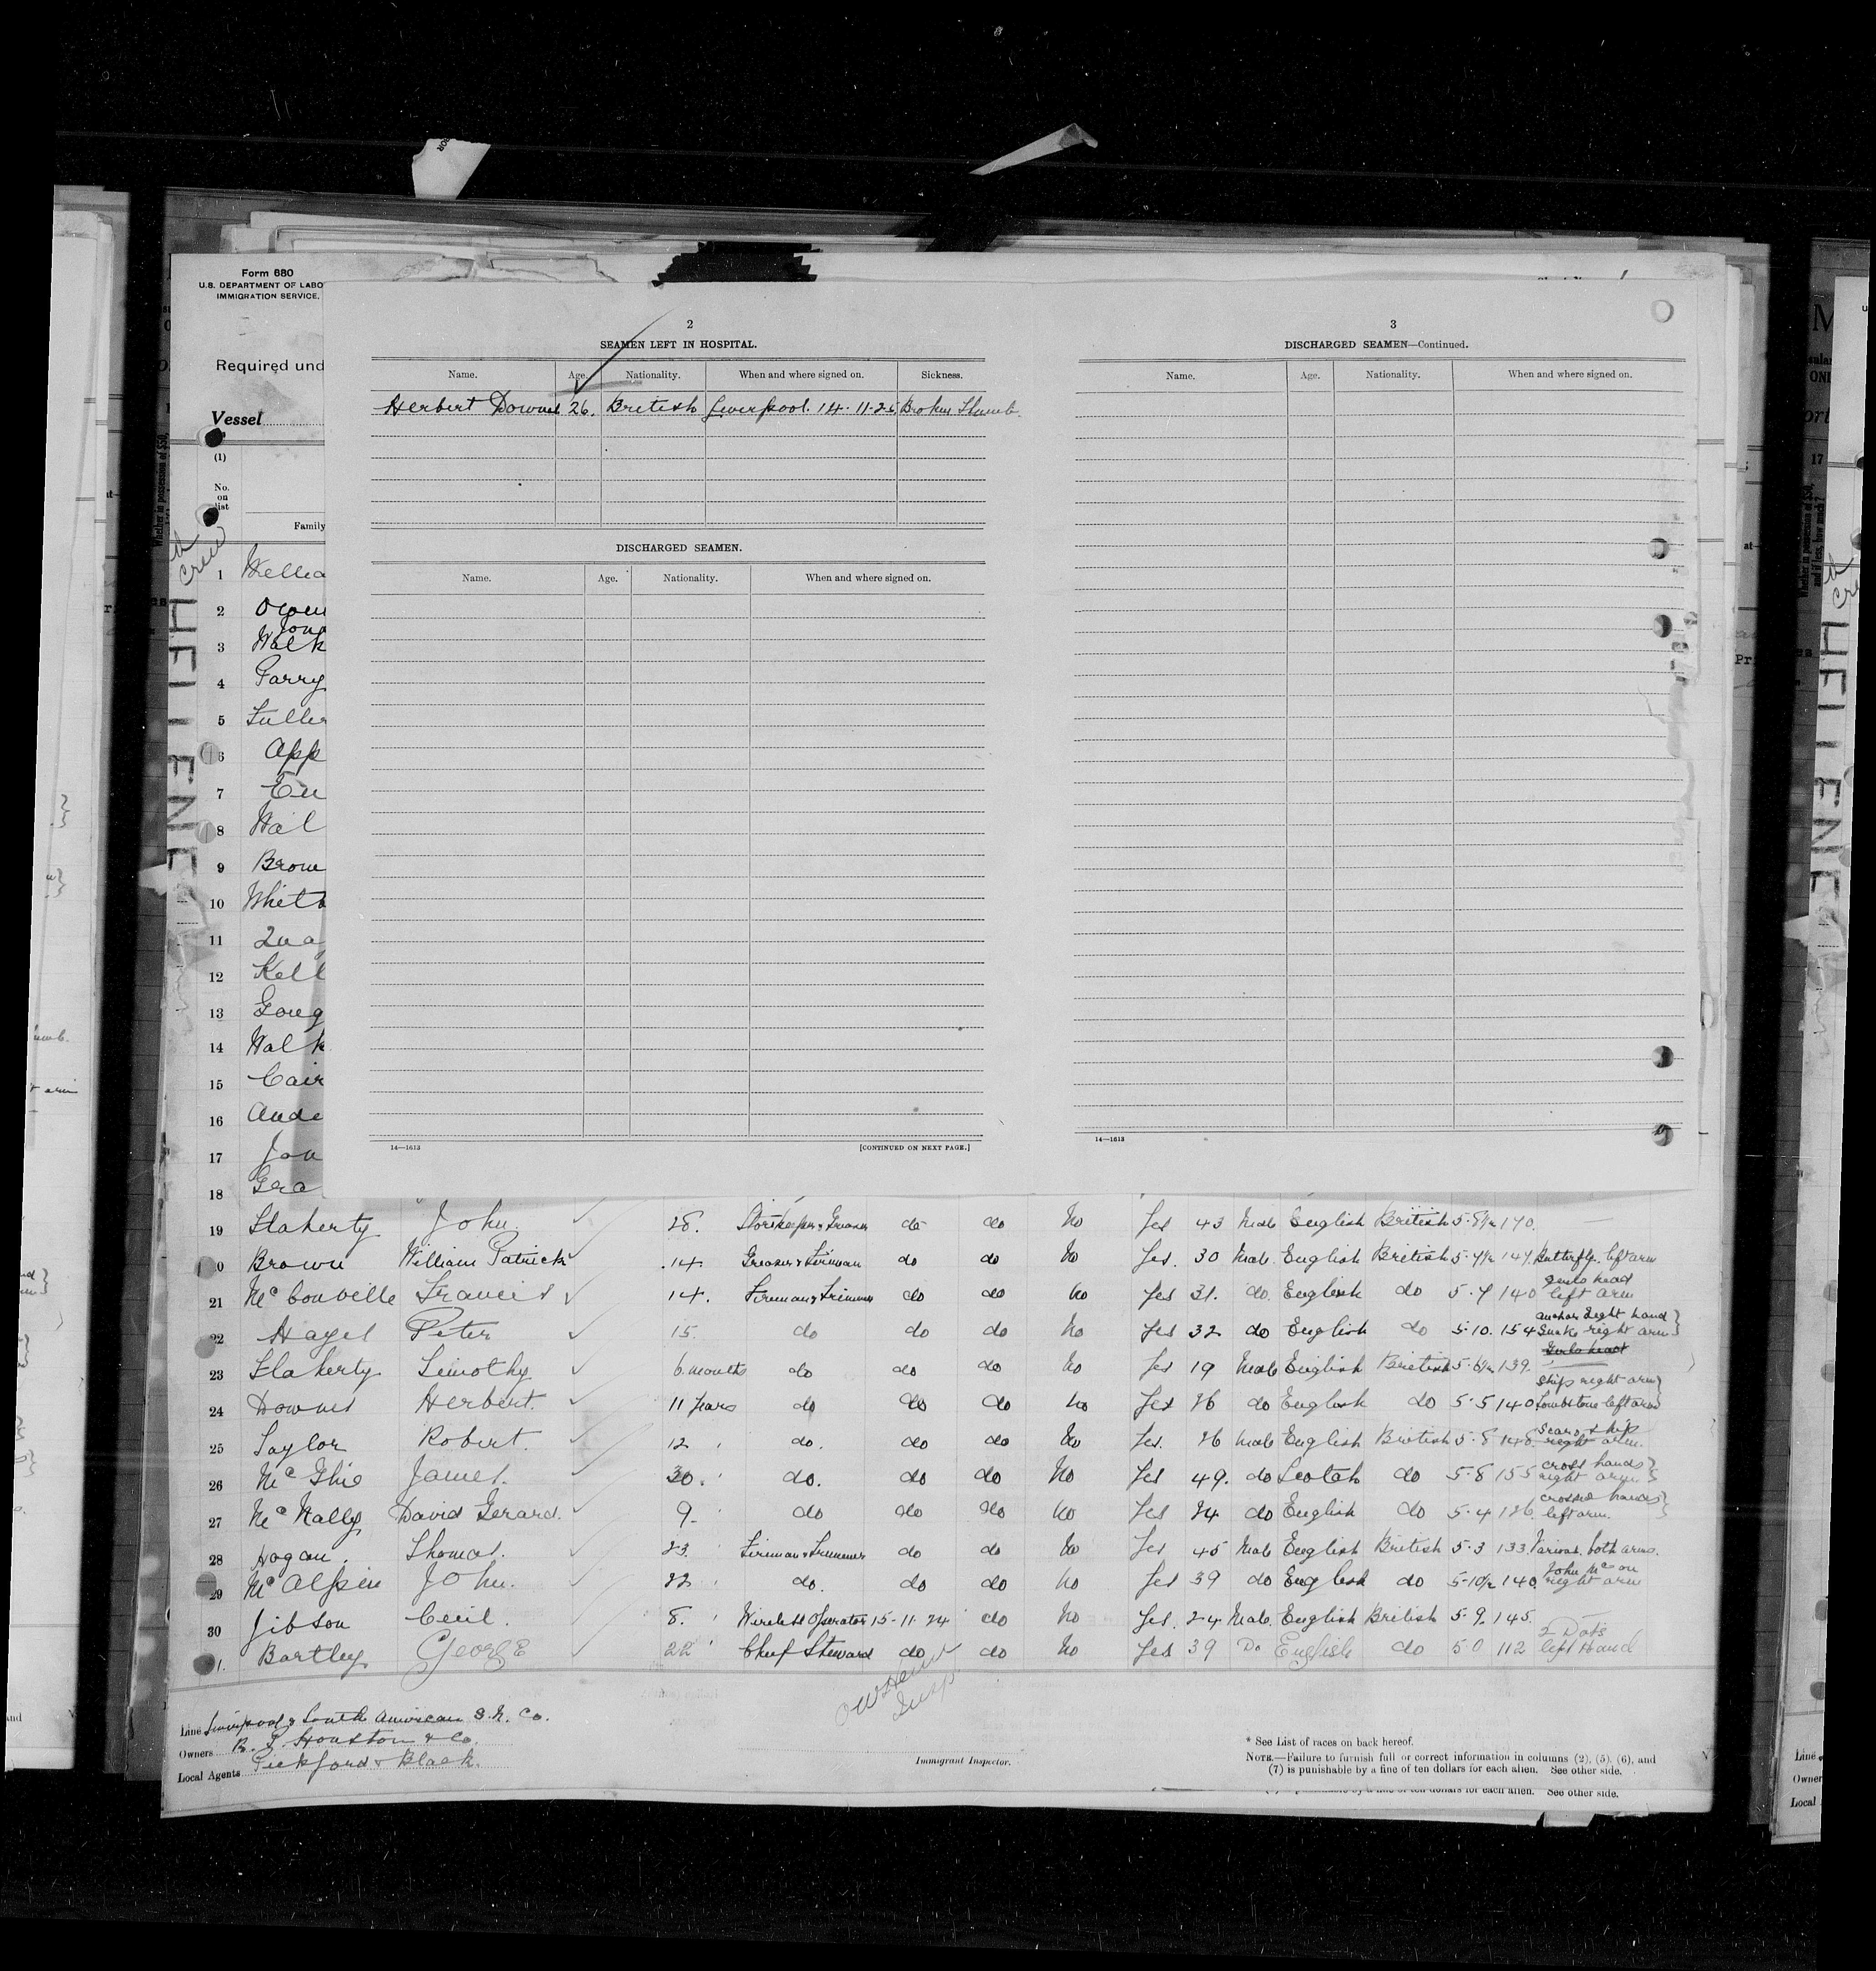 Form 680
U.S. DEPARTMENT OF LABO
IMMIGRATION SERVICE.
Required und
Vessel
(1)
No. on list
Family
crew
HELLENE
2
SEAMEN LEFT IN HOSPITAL.
Name. Age. Nationality. When and where signed on. Sickness.
Herbert Downes 26. British Liverpool. 14-11-25 Broken Thumb.
DISCHARGED SEAMEN.
Name. Age. Nationality. When and where signed on.
14—1613 [CONTINUED ON NEXT PAGE.]
3
DISCHARGED SEAMEN—Continued.
Name. Age. Nationality. When and where signed on.
14—1613
1 Willia
2 Owen
Jone
3 Walk
4 Parry
5 Fuller
6 App
7 Eu
8 Wal
9 Brow
10 Whit
11 Qua
12 Kell
13 Goug
14 Walk
15 Cair
16 Ande
17 Jon
18 Gra
19 Flaherty John. 28. Storekeeper & Greaser do do No Yes 43 Male English British 5-8½ 170.
20 Brown William Patrick 14 Greaser & Fireman do do No Yes. 30 Male English British 5-4½ 147. Butterfly left arm
21 McConville Francis 14. Fireman & Trimmer do do No Yes 31. do. English do 5-7 140 Girls head left arm
22 Hayes Peter 15. do do do No Yes 32 do English do 5-10. 154 anchor right hand Snake right arm
23 Flaherty Timothy 6 months do do do No Yes 19 Male English British 5-6½ 139. Girls head
24 Downes Herbert. 11 years do do do No Yes 26 do English do 5-5 140 Ship right arm Tombstone left arm
25 Taylor Robert. 12 do. do do No Yes. 26 Male English British 5-8 148. Scar, & ship right arm.
26 McGhie James. 30. do. do do No Yes 49. do Scotch do 5-8 155 cross hands right arm
27 McNally David Gerard. 9. do do do No Yes 24 do English do 5-4 126. crossed hands left arm.
28 Hogan. Thomas. 23. Fireman & Trimmer do do No Yes 45 Male English British 5-3 133 Various, both arms.
29 McAlpin John. 22 do. do do No Yes 39 do English do 5-10½ 140. John Mc on right arm
30 Jibson Cecil. 8. Wireless Operator 15-11-24 do No Yes. 24 Male. English British 5-9. 145.
31. Bartley George 22 Chief Steward do do No Yes 39 Do English do 5 0 112 2 Dots left Hand
Insp
Line Liverpool & South American S.N. Co.
Owners R. P. Houston & Co.
Local Agents Pickford & Black.
Immigrant Inspector.
* See List of races on back hereof.
NOTE.—Failure to furnish full or correct information in columns (2), (5), (6), and
(7) is punishable by a fine of ten dollars for each alien. See other side.
ten dollars for each alien. See other side.